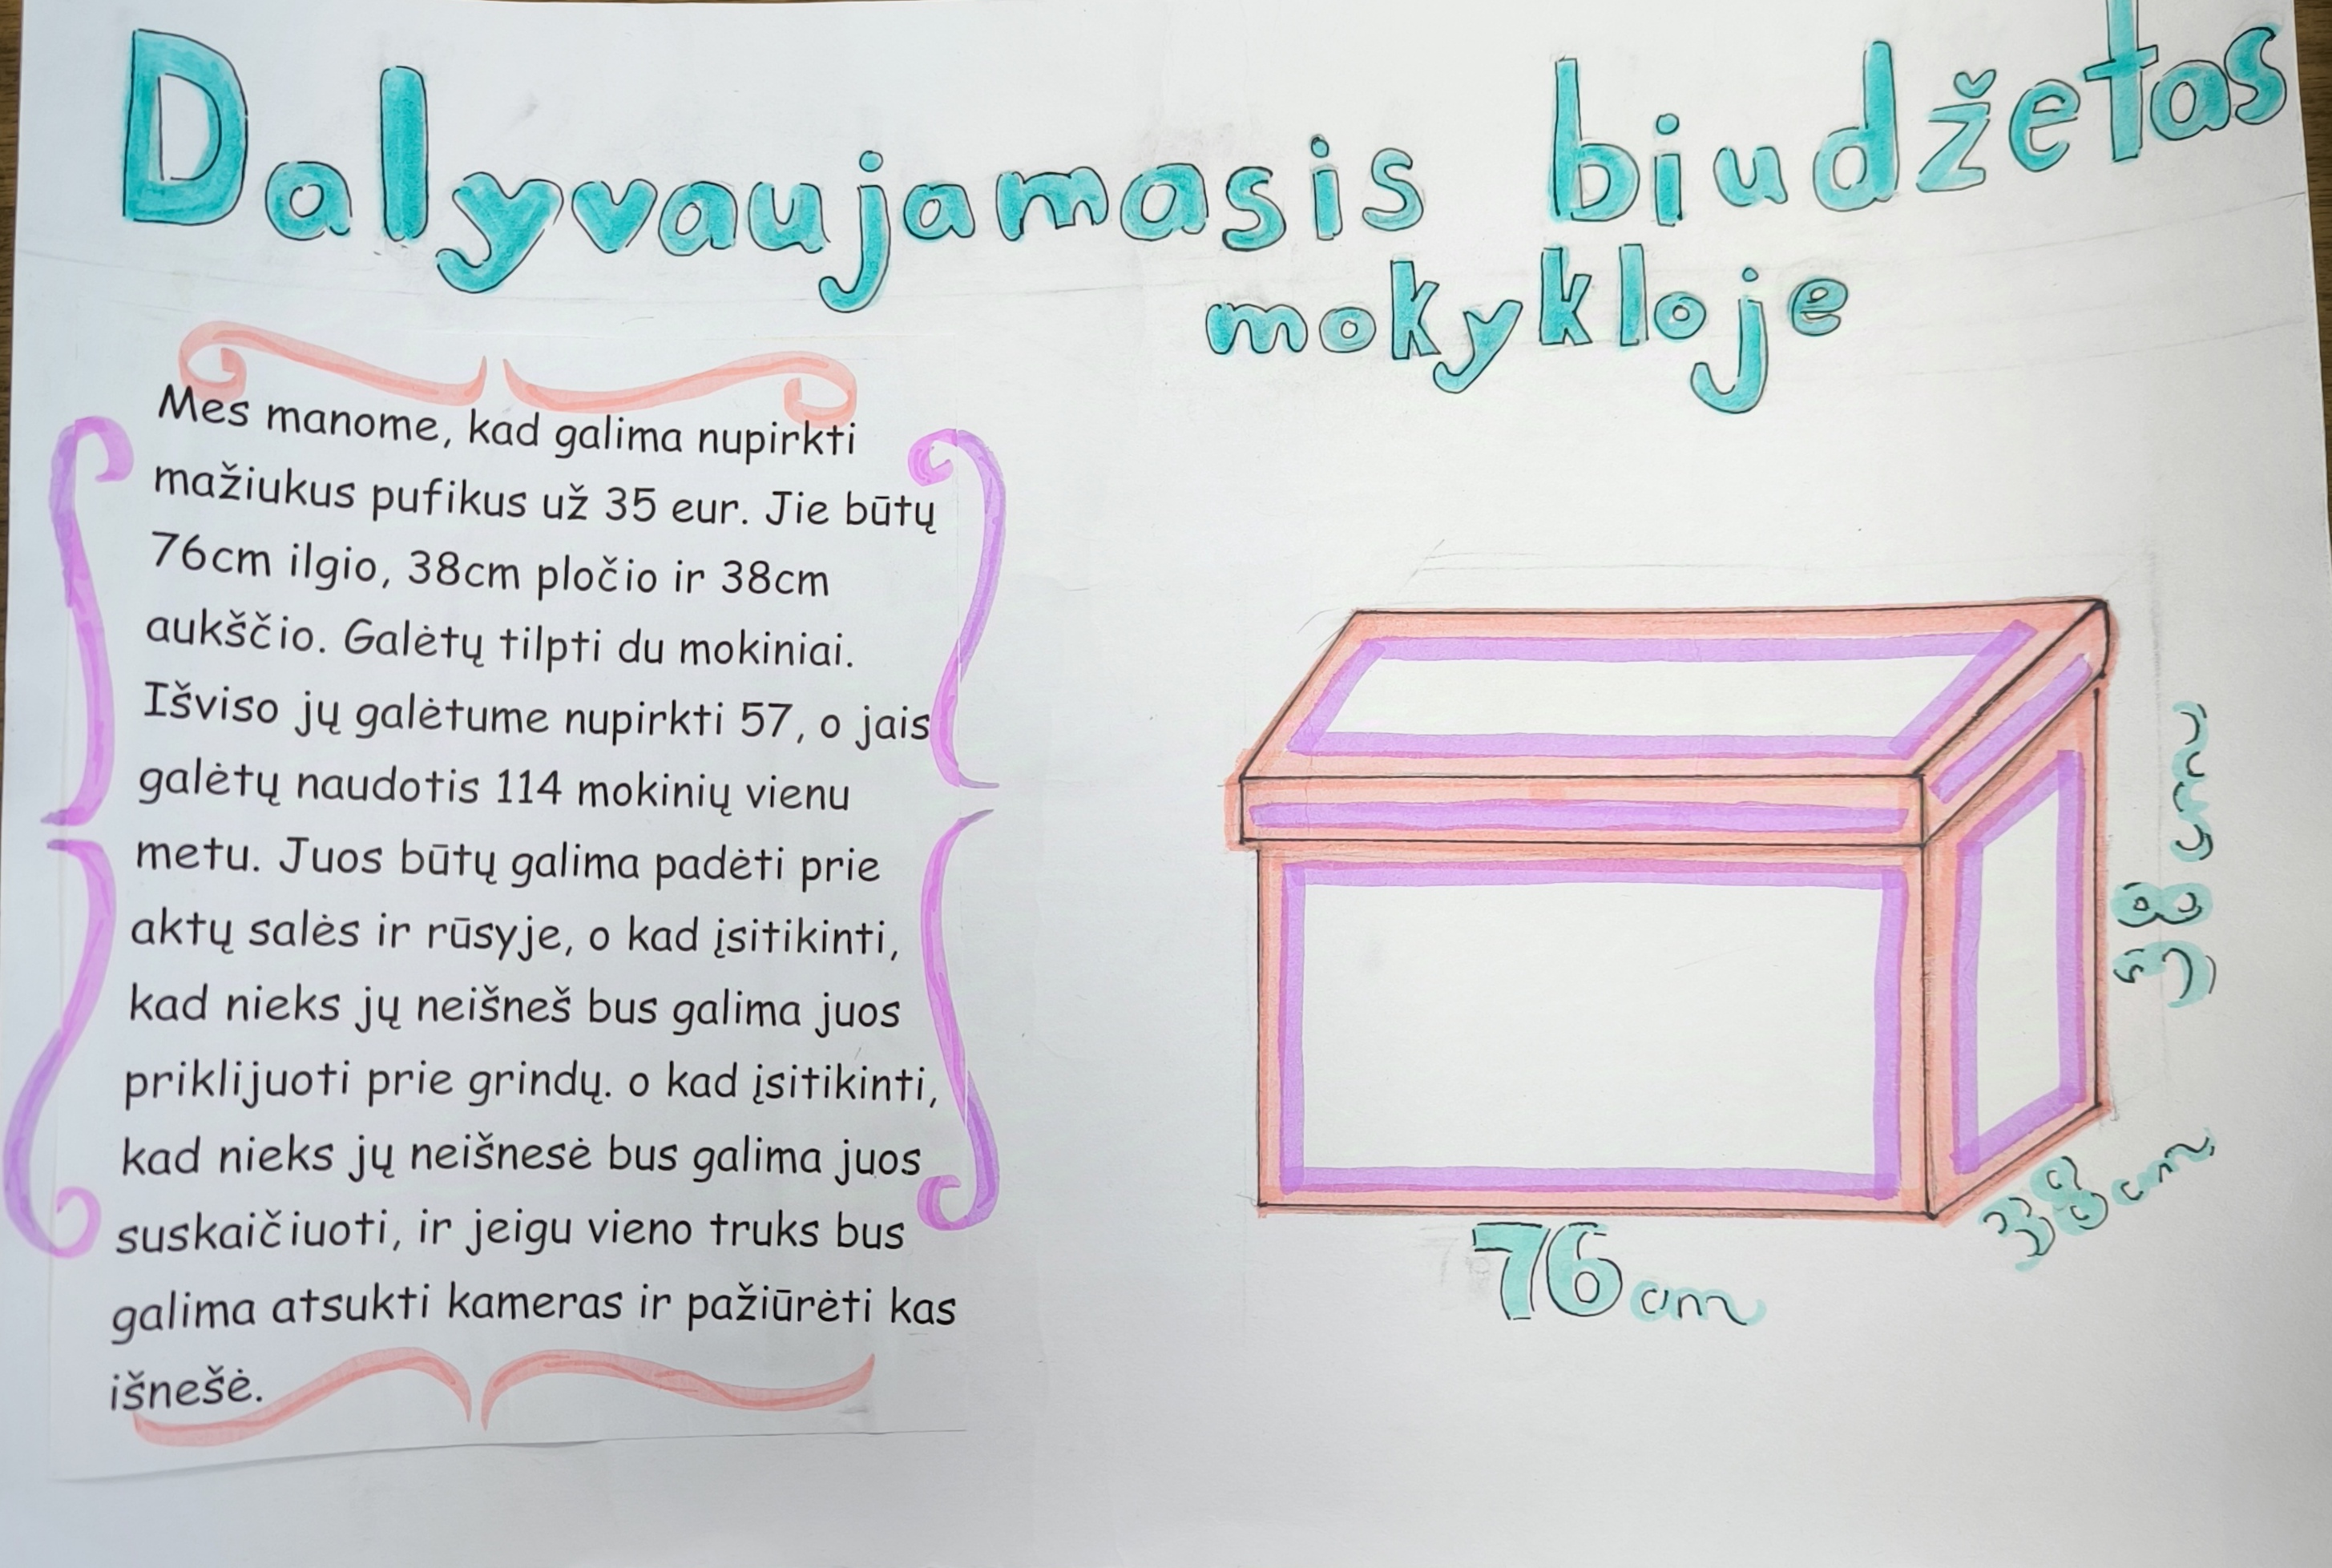 Dalyvaujamasis biudžetas
mokykloje
Mes manome, kad galima nupirkti
mažiukus pufikus už 35 eur. Jie būtų
76cm ilgio, 38cm pločio ir 38cm
aukščio. Galėtų tilpti du mokiniai.
Išviso jų galėtume nupirkti 57, o jais
galėtų naudotis 114 mokinių vienu
metu. Juos būtų galima padėti prie
aktų salės ir rūsyje, o kad įsitikinti,
kad nieks jų neišneš bus galima juos
priklijuoti prie grindų. o kad įsitikinti,
kad nieks jų neišnesė bus galima juos
suskaičiuoti, ir jeigu vieno truks bus
galima atsukti kameras ir pažiūrėti kas
išnešė.
38 cm
38cm
76cm